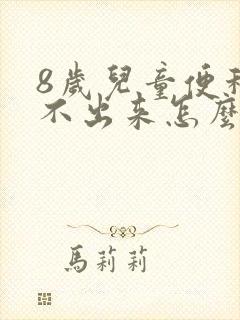 8歲兒童便秘
不出来怎麼
馬莉莉